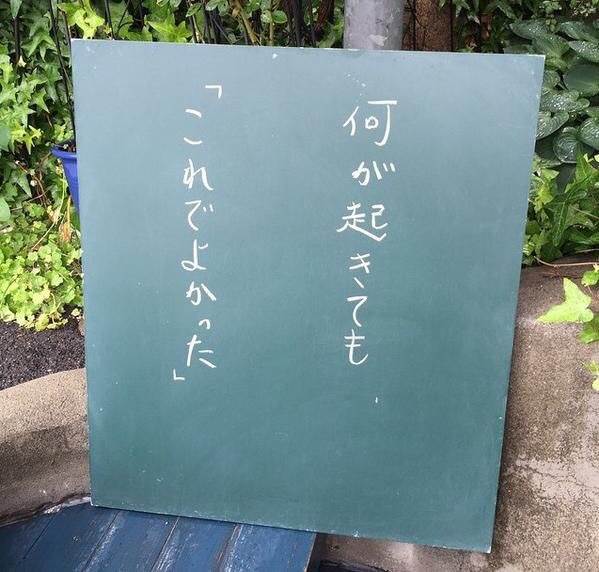 何が起きても
「これでよかった」